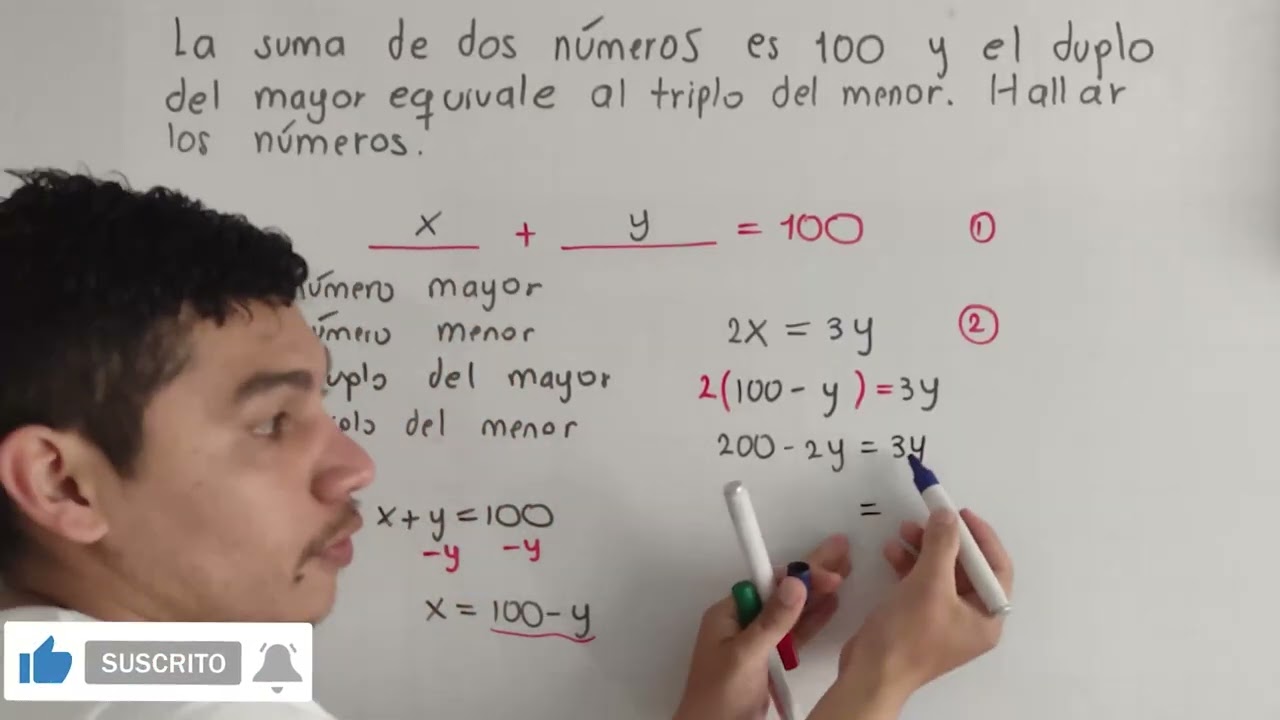 La suma de dos números es 100 y el duplo
del mayor equivale al triplo del menor. Hallar
los números.
x + y = 100 ①
número mayor
número menor
duplo del mayor
del menor
2x = 3y ②
2(100 - y) = 3y
200 - 2y = 3y
=
x + y = 100
-y -y
x = 100 - y
SUSCRITO